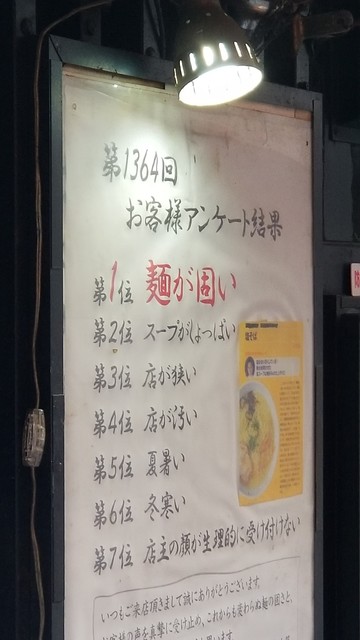 第1364回
お客様アンケート結果
第1位 麺が固い
第2位 スープがしょっぱい
第3位 店が狭い
第4位 店が汚い
第5位 夏暑い
第6位 冬寒い
第7位 店主の顔が生理的に受け付けない
いつもご来店頂きまして誠にありがとうございます。
お客様の声を真摯に受け止め、これからも変わらぬ麺の固さと、